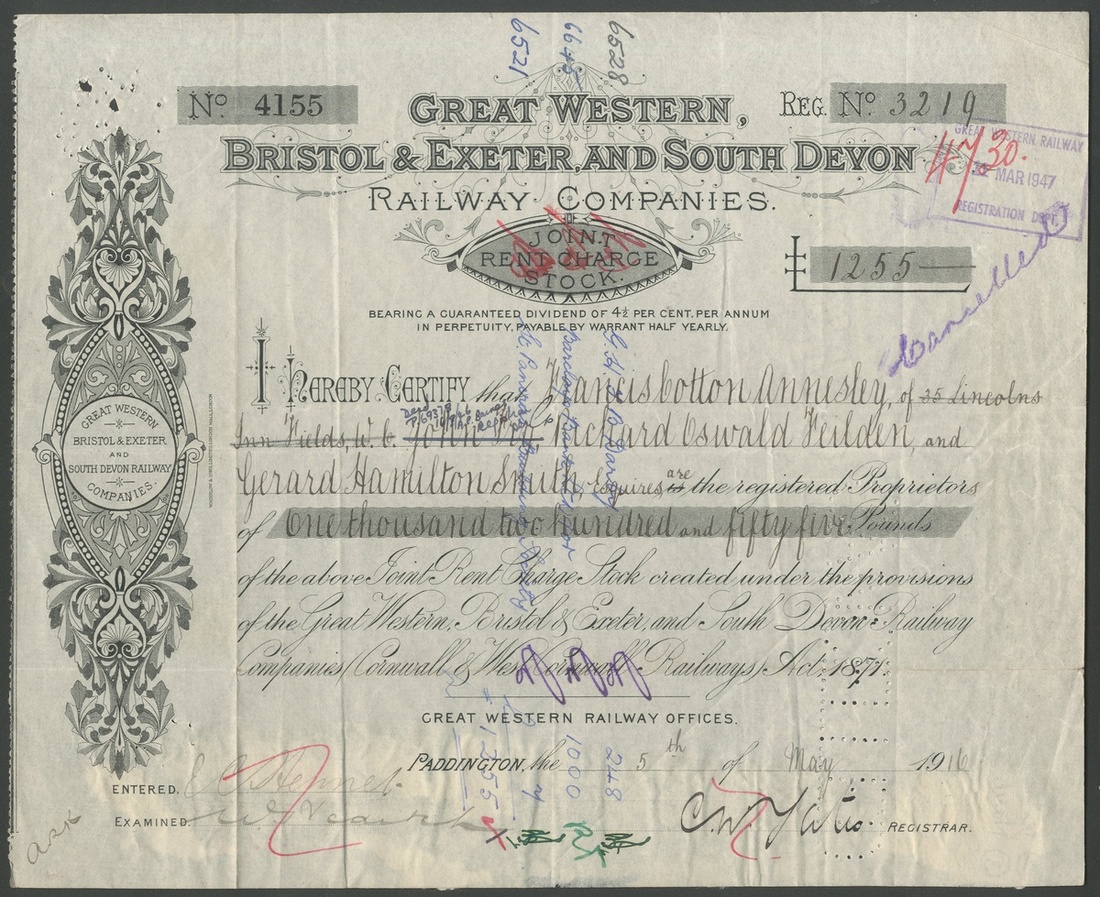 6521
6645
6528
No. 4155
GREAT WESTERN,
REG. No. 3219
BRISTOL & EXETER, AND SOUTH DEVON
RAILWAY COMPANIES.
GREAT WESTERN RAILWAY
MAR 1947
REGISTRATION DEPT.
4730.
Cancelled
JOINT
RENT CHARGE
STOCK.
£ 1255
BEARING A GUARANTEED DIVIDEND OF 4½ PER CENT. PER ANNUM
IN PERPETUITY, PAYABLE BY WARRANT HALF YEARLY.
I HEREBY CERTIFY that Francis Cotton Annesley, of 35 Lincolns
Inn Fields, W.C. John Richard Oswald Feilden, and
Gerard Hamilton Smith, Esquires are the registered Proprietors
of One thousand two hundred and fifty five Pounds
of the above Joint Rent Charge Stock created under the provisions
of the Great Western, Bristol & Exeter, and South Devon Railway
Companies (Cornwall & West Cornwall Railways) Act, 1877.
GREAT WESTERN RAILWAY OFFICES.
PADDINGTON, the 5th of May 1916
ENTERED.
EXAMINED.
REGISTRAR.
GREAT WESTERN
BRISTOL & EXETER
AND
SOUTH DEVON RAILWAY
COMPANIES.
£1255
7
1000
248